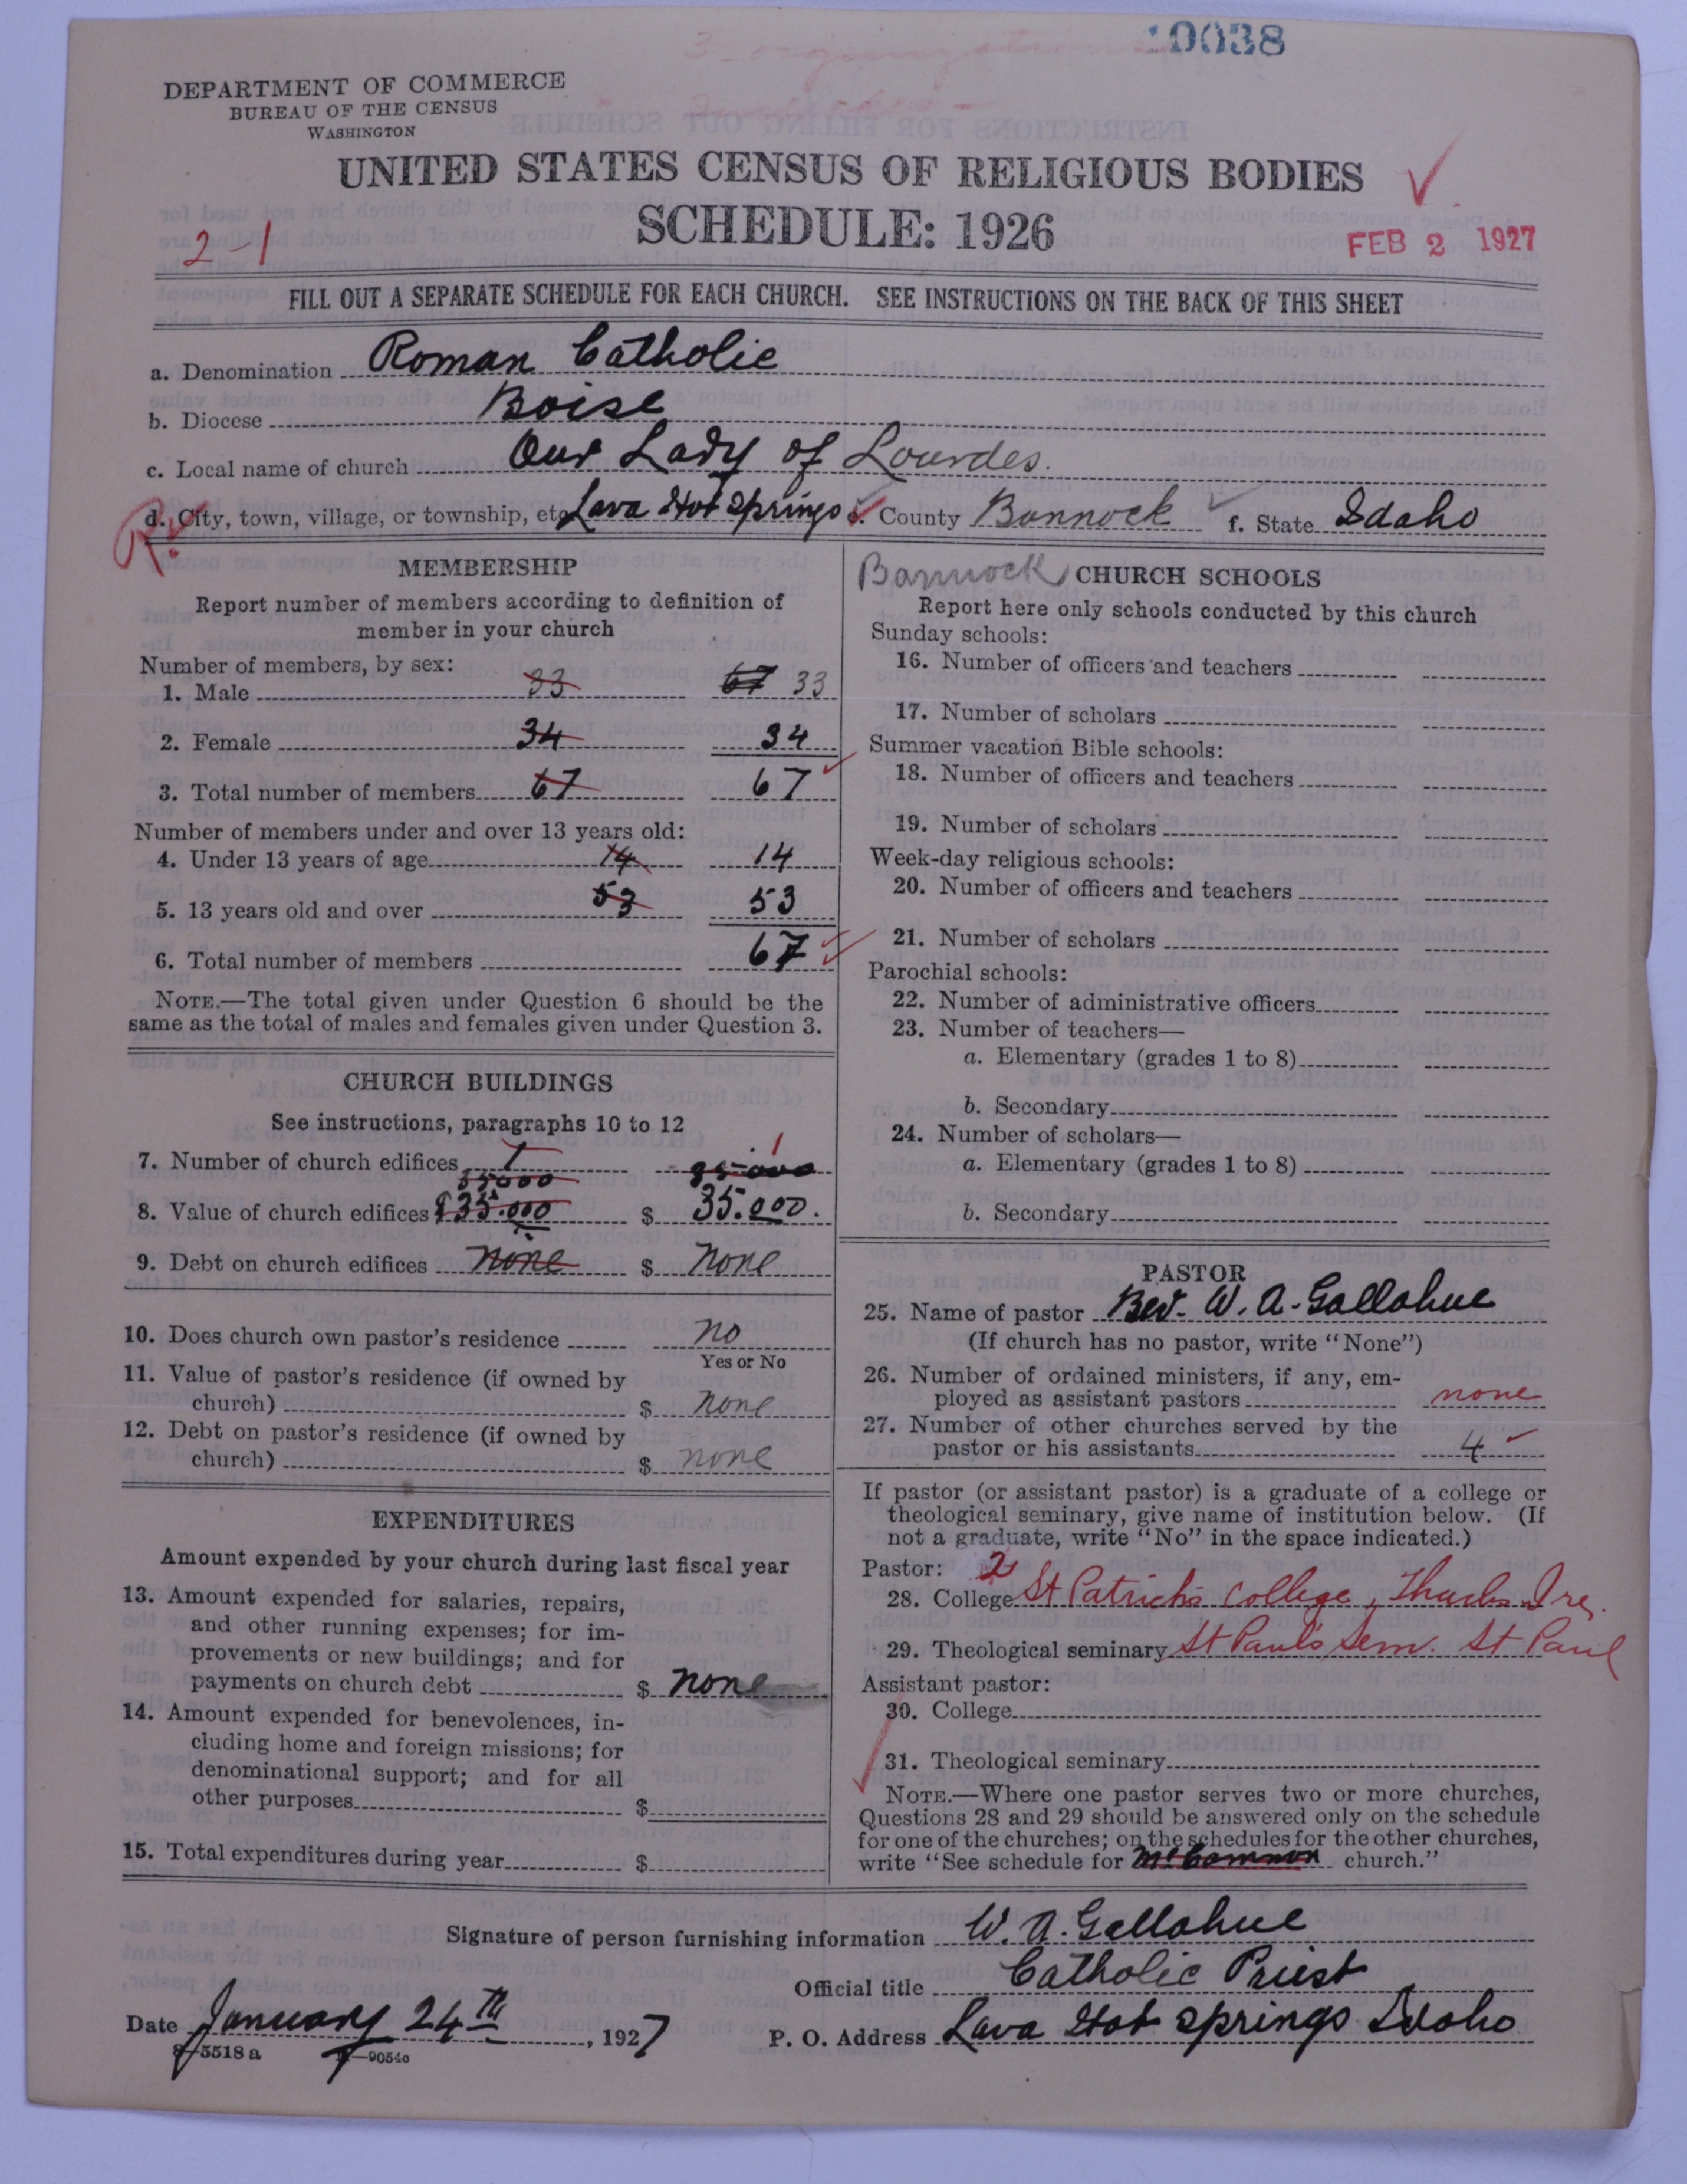 10038
DEPARTMENT OF COMMERCE
BUREAU OF THE CENSUS
WASHINGTON
UNITED STATES CENSUS OF RELIGIOUS BODIES
SCHEDULE: 1926
2-1
FEB 2 1927
FILL OUT A SEPARATE SCHEDULE FOR EACH CHURCH. SEE INSTRUCTIONS ON THE BACK OF THIS SHEET
a. Denomination Roman Catholic
b. Diocese Boise
c. Local name of church Our Lady of Lourdes.
d. City, town, village, or township, etc. Lava Hot Springs e. County Bannock f. State Idaho
MEMBERSHIP
Report number of members according to definition of
member in your church
Number of members, by sex:
1. Male 33 67 33
2. Female 34 34
3. Total number of members 67 67
Number of members under and over 13 years old:
4. Under 13 years of age 14 14
5. 13 years old and over 53 53
6. Total number of members 67
NOTE.—The total given under Question 6 should be the
same as the total of males and females given under Question 3.
CHURCH BUILDINGS
See instructions, paragraphs 10 to 12
7. Number of church edifices 1 35000 1
35000
8. Value of church edifices $35.000 $ 35.000.
9. Debt on church edifices none $ none
10. Does church own pastor's residence no
Yes or No
11. Value of pastor's residence (if owned by
church) $ none
12. Debt on pastor's residence (if owned by
church) $ none
EXPENDITURES
Amount expended by your church during last fiscal year
13. Amount expended for salaries, repairs,
and other running expenses; for im-
provements or new buildings; and for
payments on church debt $ none
14. Amount expended for benevolences, in-
cluding home and foreign missions; for
denominational support; and for all
other purposes $
15. Total expenditures during year $
Bannock CHURCH SCHOOLS
Report here only schools conducted by this church
Sunday schools:
16. Number of officers and teachers
17. Number of scholars
Summer vacation Bible schools:
18. Number of officers and teachers
19. Number of scholars
Week-day religious schools:
20. Number of officers and teachers
21. Number of scholars
Parochial schools:
22. Number of administrative officers
23. Number of teachers—
a. Elementary (grades 1 to 8)
b. Secondary
24. Number of scholars—
a. Elementary (grades 1 to 8)
b. Secondary
PASTOR
25. Name of pastor Rev. W. A. Gallahue
(If church has no pastor, write "None")
26. Number of ordained ministers, if any, em-
ployed as assistant pastors none
27. Number of other churches served by the
pastor or his assistants 4
If pastor (or assistant pastor) is a graduate of a college or
theological seminary, give name of institution below. (If
not a graduate, write "No" in the space indicated.)
Pastor: 2
28. College St Patrick's College, Thurles Ire.
29. Theological seminary St Paul's Sem. St Paul
Assistant pastor:
30. College
31. Theological seminary
NOTE.—Where one pastor serves two or more churches,
Questions 28 and 29 should be answered only on the schedule
for one of the churches; on the schedules for the other churches,
write "See schedule for McCammon church."
Signature of person furnishing information W. A. Gallahue
Official title Catholic Priest
Date January 24TH, 1927 P. O. Address Lava Hot Springs Idaho
8—5518 a